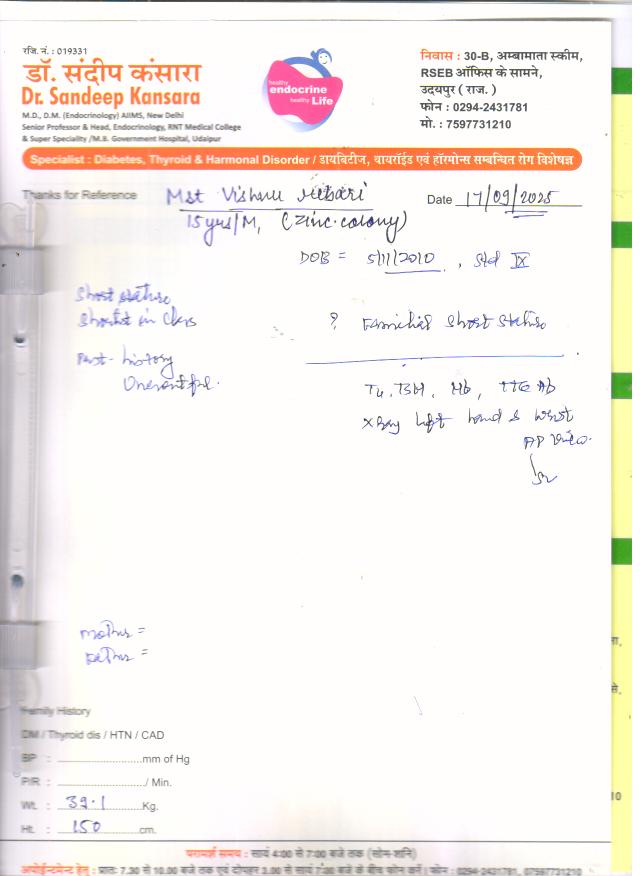 रजि. नं. : 019331
डॉ. संदीप कंसारा
Dr. Sandeep Kansara
M.D., D.M. (Endocrinology) AIIMS, New Delhi
Senior Professor & Head, Endocrinology, RNT Medical College
& Super Speciality /M.B. Government Hospital, Udaipur
healthy
endocrine
healthy Life
निवास : 30-B, अम्बामाता स्कीम,
RSEB ऑफिस के सामने,
उदयपुर ( राज. )
फोन : 0294-2431781
मो. : 7597731210
Specialist : Diabetes, Thyroid & Harmonal Disorder / डायबिटीज, थायरॉईड एवं हॉरमोन्स सम्बन्धित रोग विशेषज्ञ
Thanks for Reference Mst Vishnu Date 17/09/2025
15yrs/M, (Zinc colony)
DOB = 5/11/2010 , Std IX
Short stature
Shortest in Class
? Familial Short Stature
Past history
Uneventful.
T4, TSH, Hb, TTG Ab
X Ray left hand & wrist
AP view.
Mother =
Father =
Family History
DM / Thyroid dis / HTN / CAD
BP : mm of Hg
P/R : / Min.
Wt. : 39.1 Kg.
Ht. : 150 cm.
परामर्श समय : सायं 4:00 से 7:00 बजे तक (सोम-शनि)
अपोईन्टमेन्ट हेतु : प्रातः 7.30 से 10.00 बजे तक एवं दोपहर 3.00 से सायं 7.00 बजे के बीच फोन करें। फोन : 0294-2431781, 07597731210